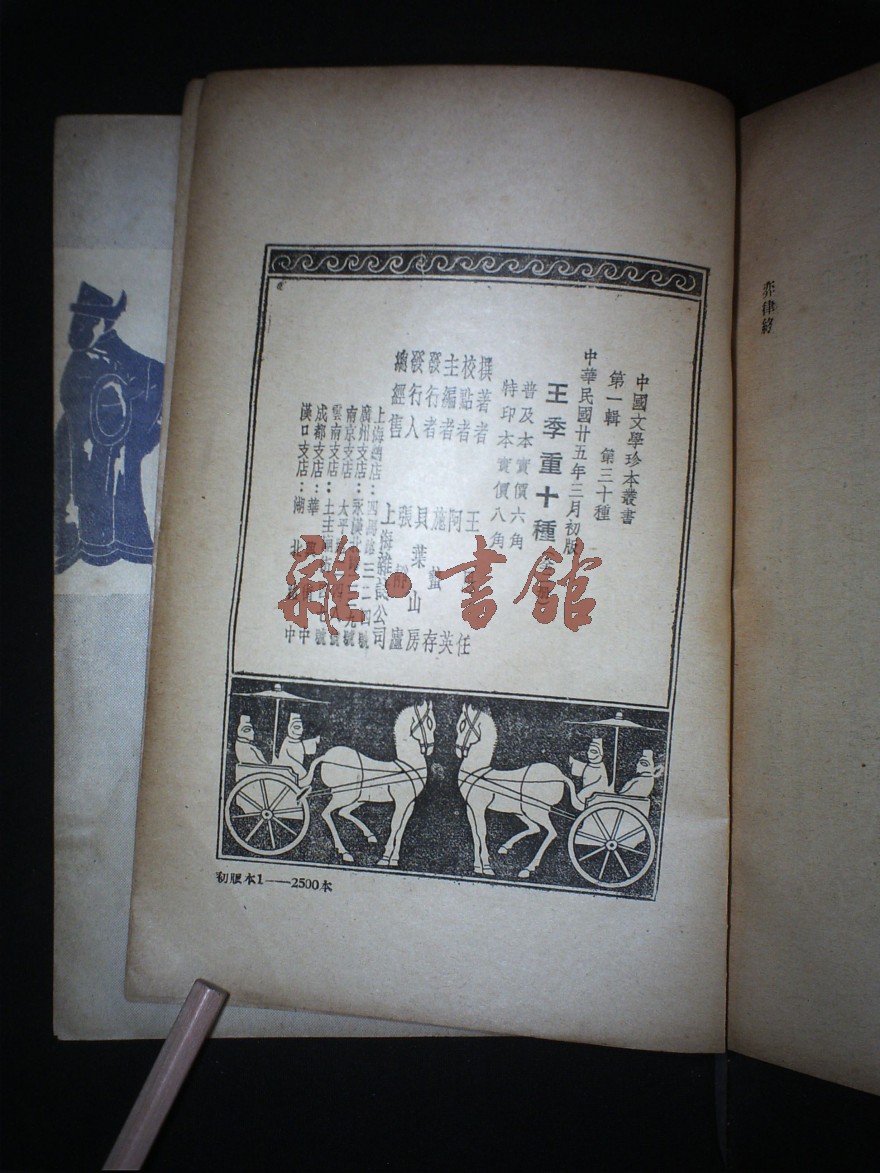 弈律終
中國文學珍本叢書
第一輯 第三十種
中華民國廿五年三月初版
王季重十種
普及本實價六角
特印本實價八角
撰著者 王 任
校點者 阿英
主編者 施蟄存
發行者 貝葉山房
發行人 張靜廬
總經售 上海雜誌公司
上海總店:四馬路三二四號
廣州支店:永漢北路 號
南京支店:太平 號
雲南支店:土主廟街 號
成都支店:華 中
漢口支店:湖北 中
初版本1——2500本
雜·書館